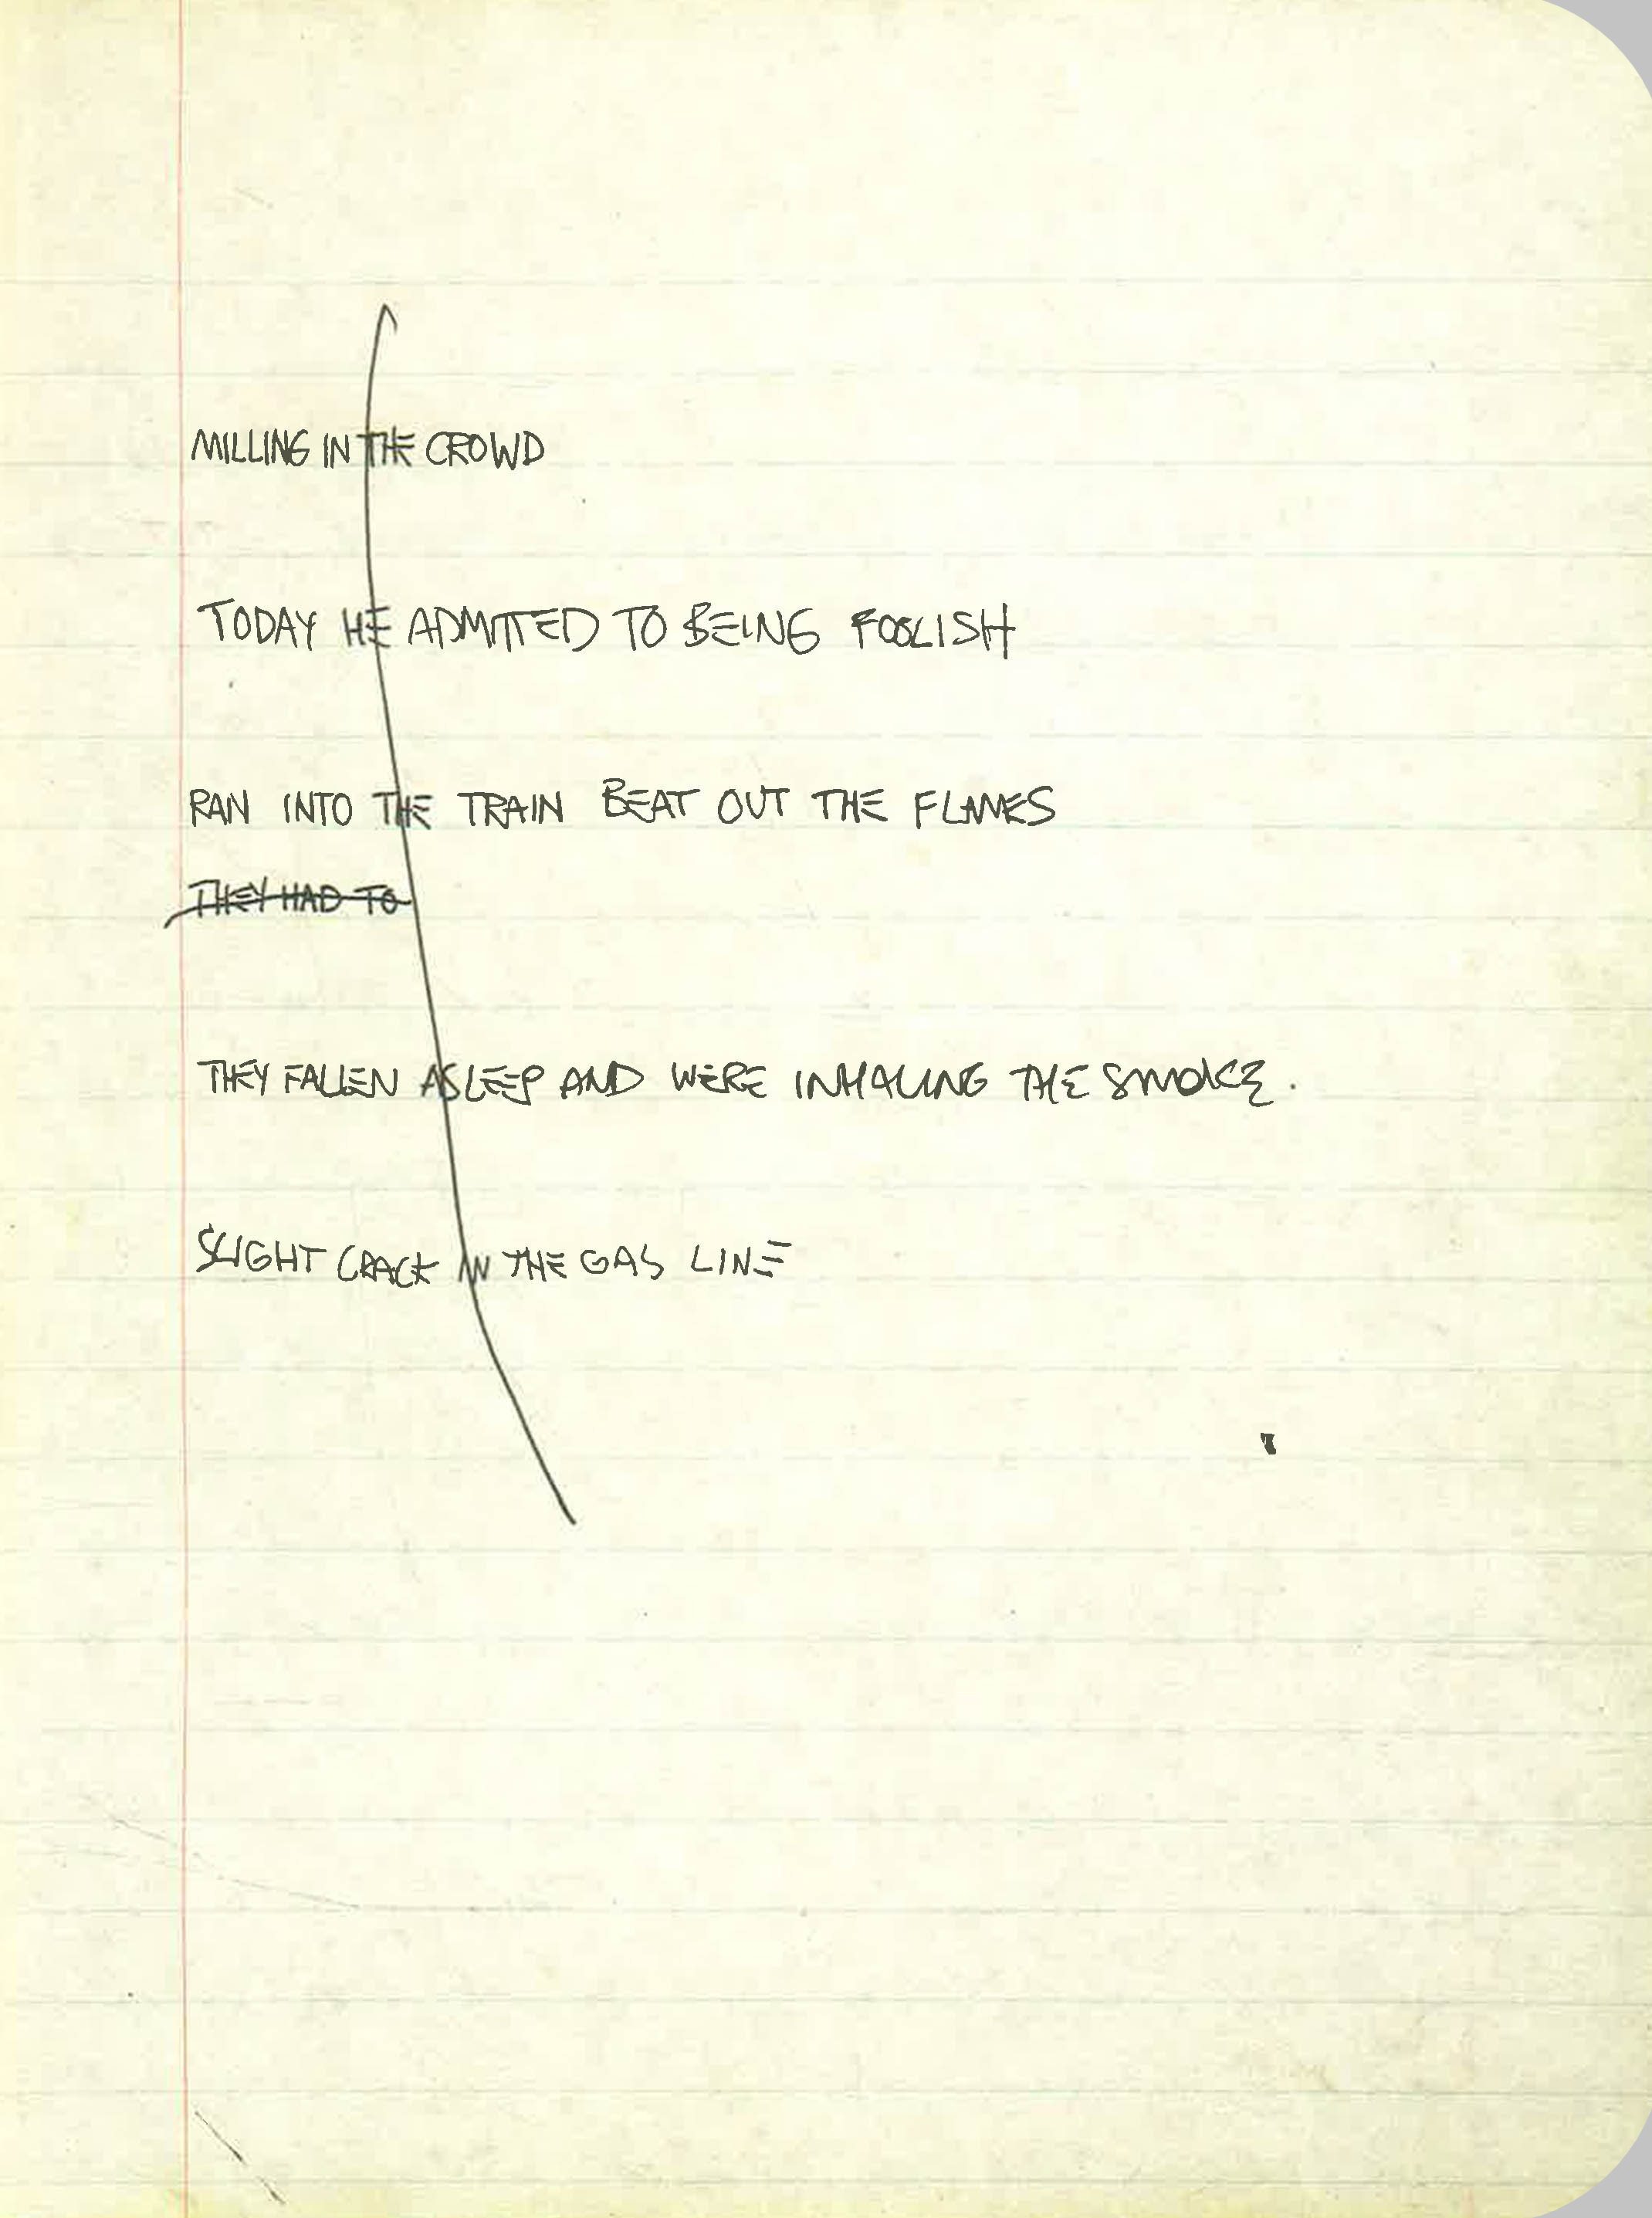 MILLING IN THE CROWD
TODAY HE ADMITTED TO BEING FOOLISH
RAN INTO THE TRAIN BEAT OUT THE FLAMES
THEY HAD TO
THEY FALLEN ASLEEP AND WERE INHALING THE SMOKE.
SLIGHT CRACK IN THE GAS LINE